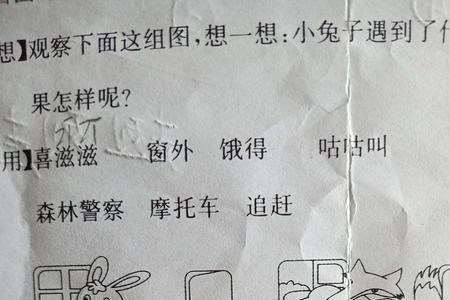 想】观察下面这组图,想一想:小兔子遇到了什
果怎样呢?
用】喜滋滋 窗外 饿得 咕咕叫
森林警察 摩托车 追赶